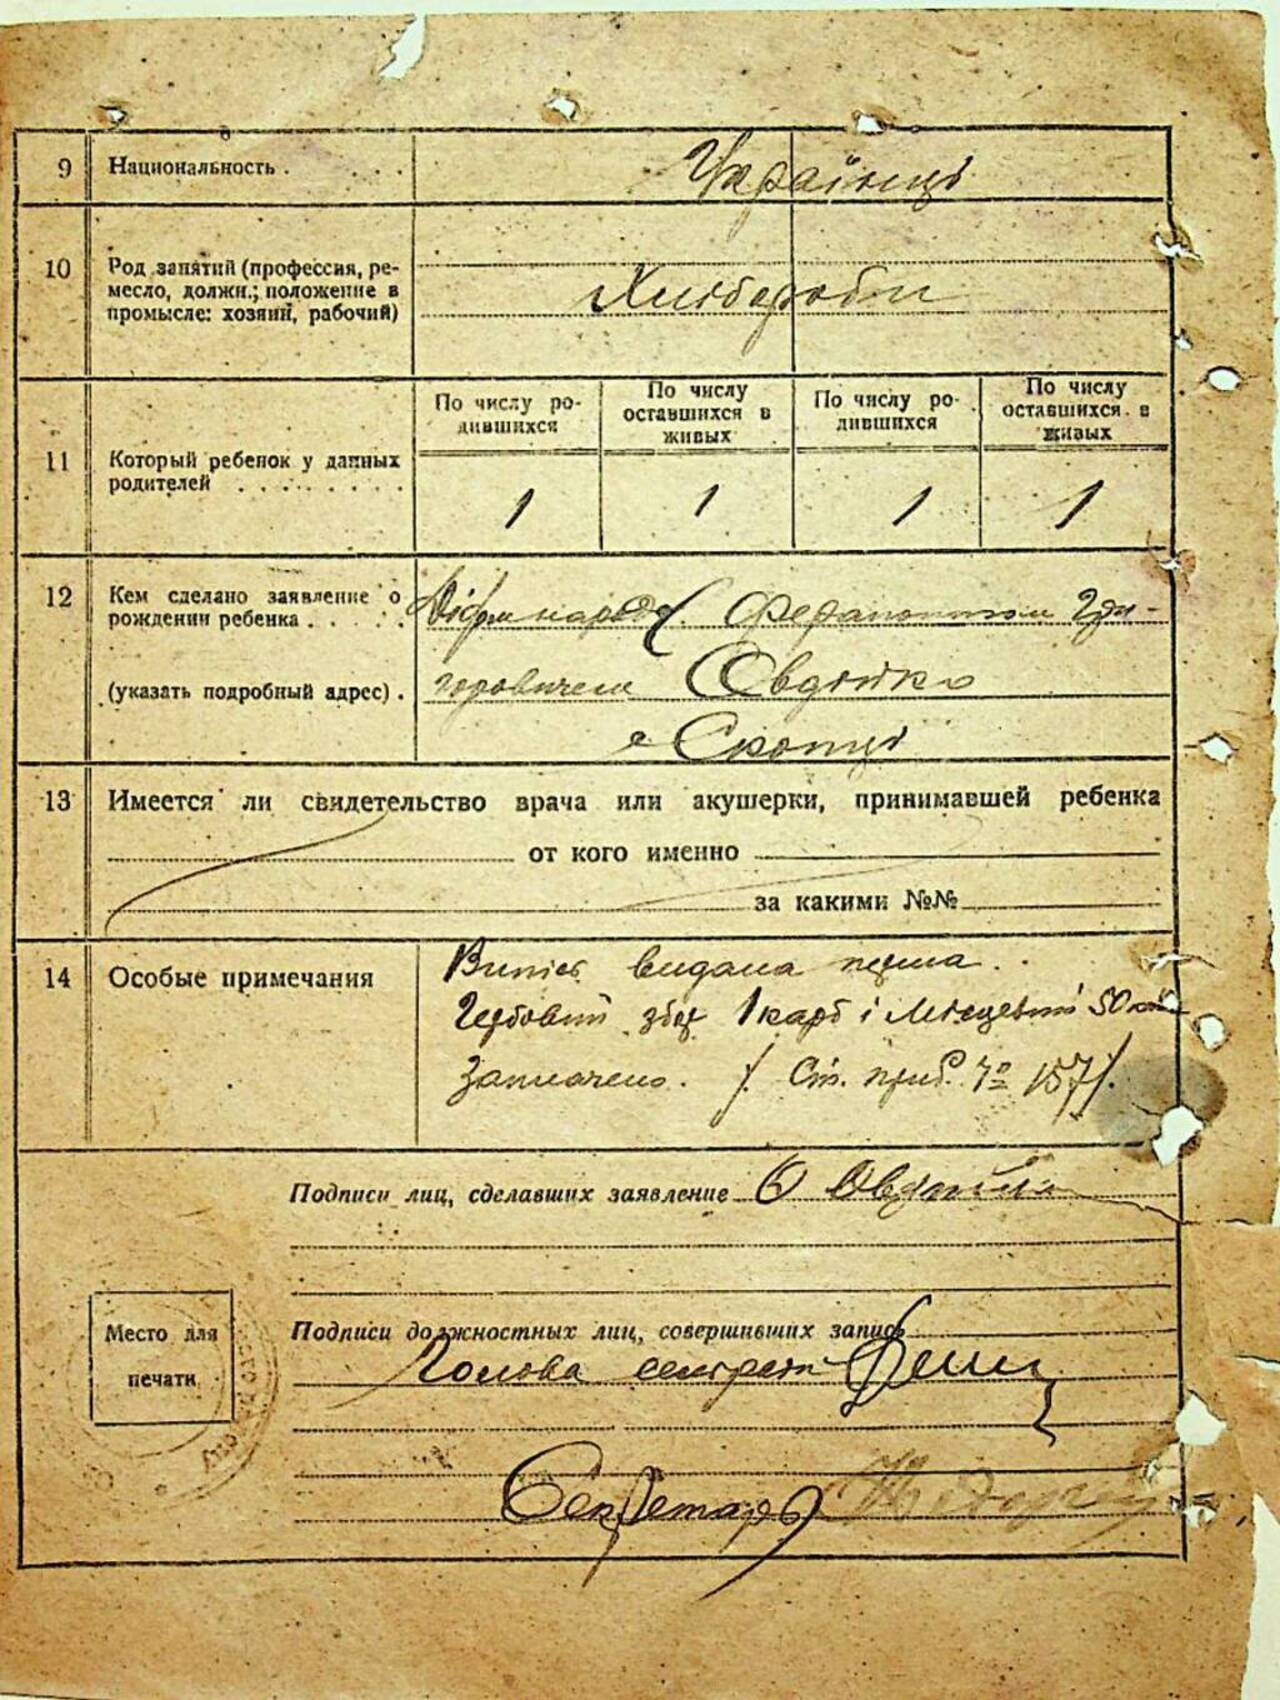 9 Национальность . . . . Українці
10 Род занятий (профессия, ре-
месло, должн.; положение в
промысле: хозяин, рабочий)
Хлібороби
По числу ро-
дившихся
По числу
оставшихся в
живых
По числу ро-
дившихся
По числу
оставшихся в
живых
11 Который ребенок у данных
родителей . . . . . . . .
1 1 1 1
12 Кем сделано заявление о
рождении ребенка . . . . .
(указать подробный адрес) .
Ферапонтом Гри-
горовичем Овдійко
с Скопці
13 Имеется ли свидетельство врача или акушерки, принимавшей ребенка
от кого именно
за какими №№
14 Особые примечания
видана перша.
Гербовий збір 1 карб і Місцевий 50 коп
Заплачено. /. Ст. приб. № 157/.
Подписи лиц, сделавших заявление
Овдійко
Место для
печати
Подписи должностных лиц, совершивших запись
Голова сельради
Секретарь